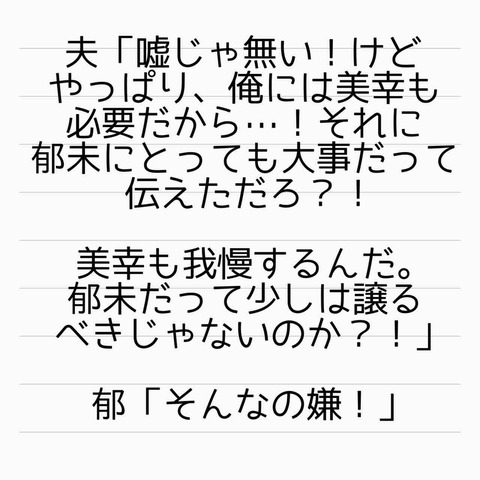 夫「嘘じゃ無い！けど
やっぱり、俺には美幸も
必要だから…！それに
郁未にとっても大事だって
伝えただろ？！
美幸も我慢するんだ。
郁未だって少しは譲る
べきじゃないのか？！」
郁「そんなの嫌！」